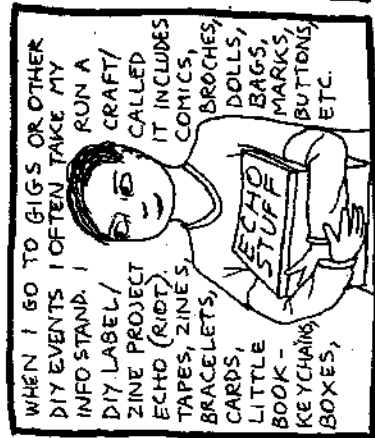 WHEN I GO TO GIGS OR OTHER
DIY EVENTS I OFTEN TAKE MY
INFOSTAND. I RUN A
DIY LABEL/ CRAFT/
ZINE PROJECT CALLED
ECHO (RIOT). IT INCLUDES
TAPES, ZINES, COMICS,
BRACELETS, BROCHES,
CARDS, DOLLS,
LITTLE BAGS,
BOOK- MARKS,
KEYCHAINS, BUTTONS,
BOXES, ETC.
ECHO
STUFF